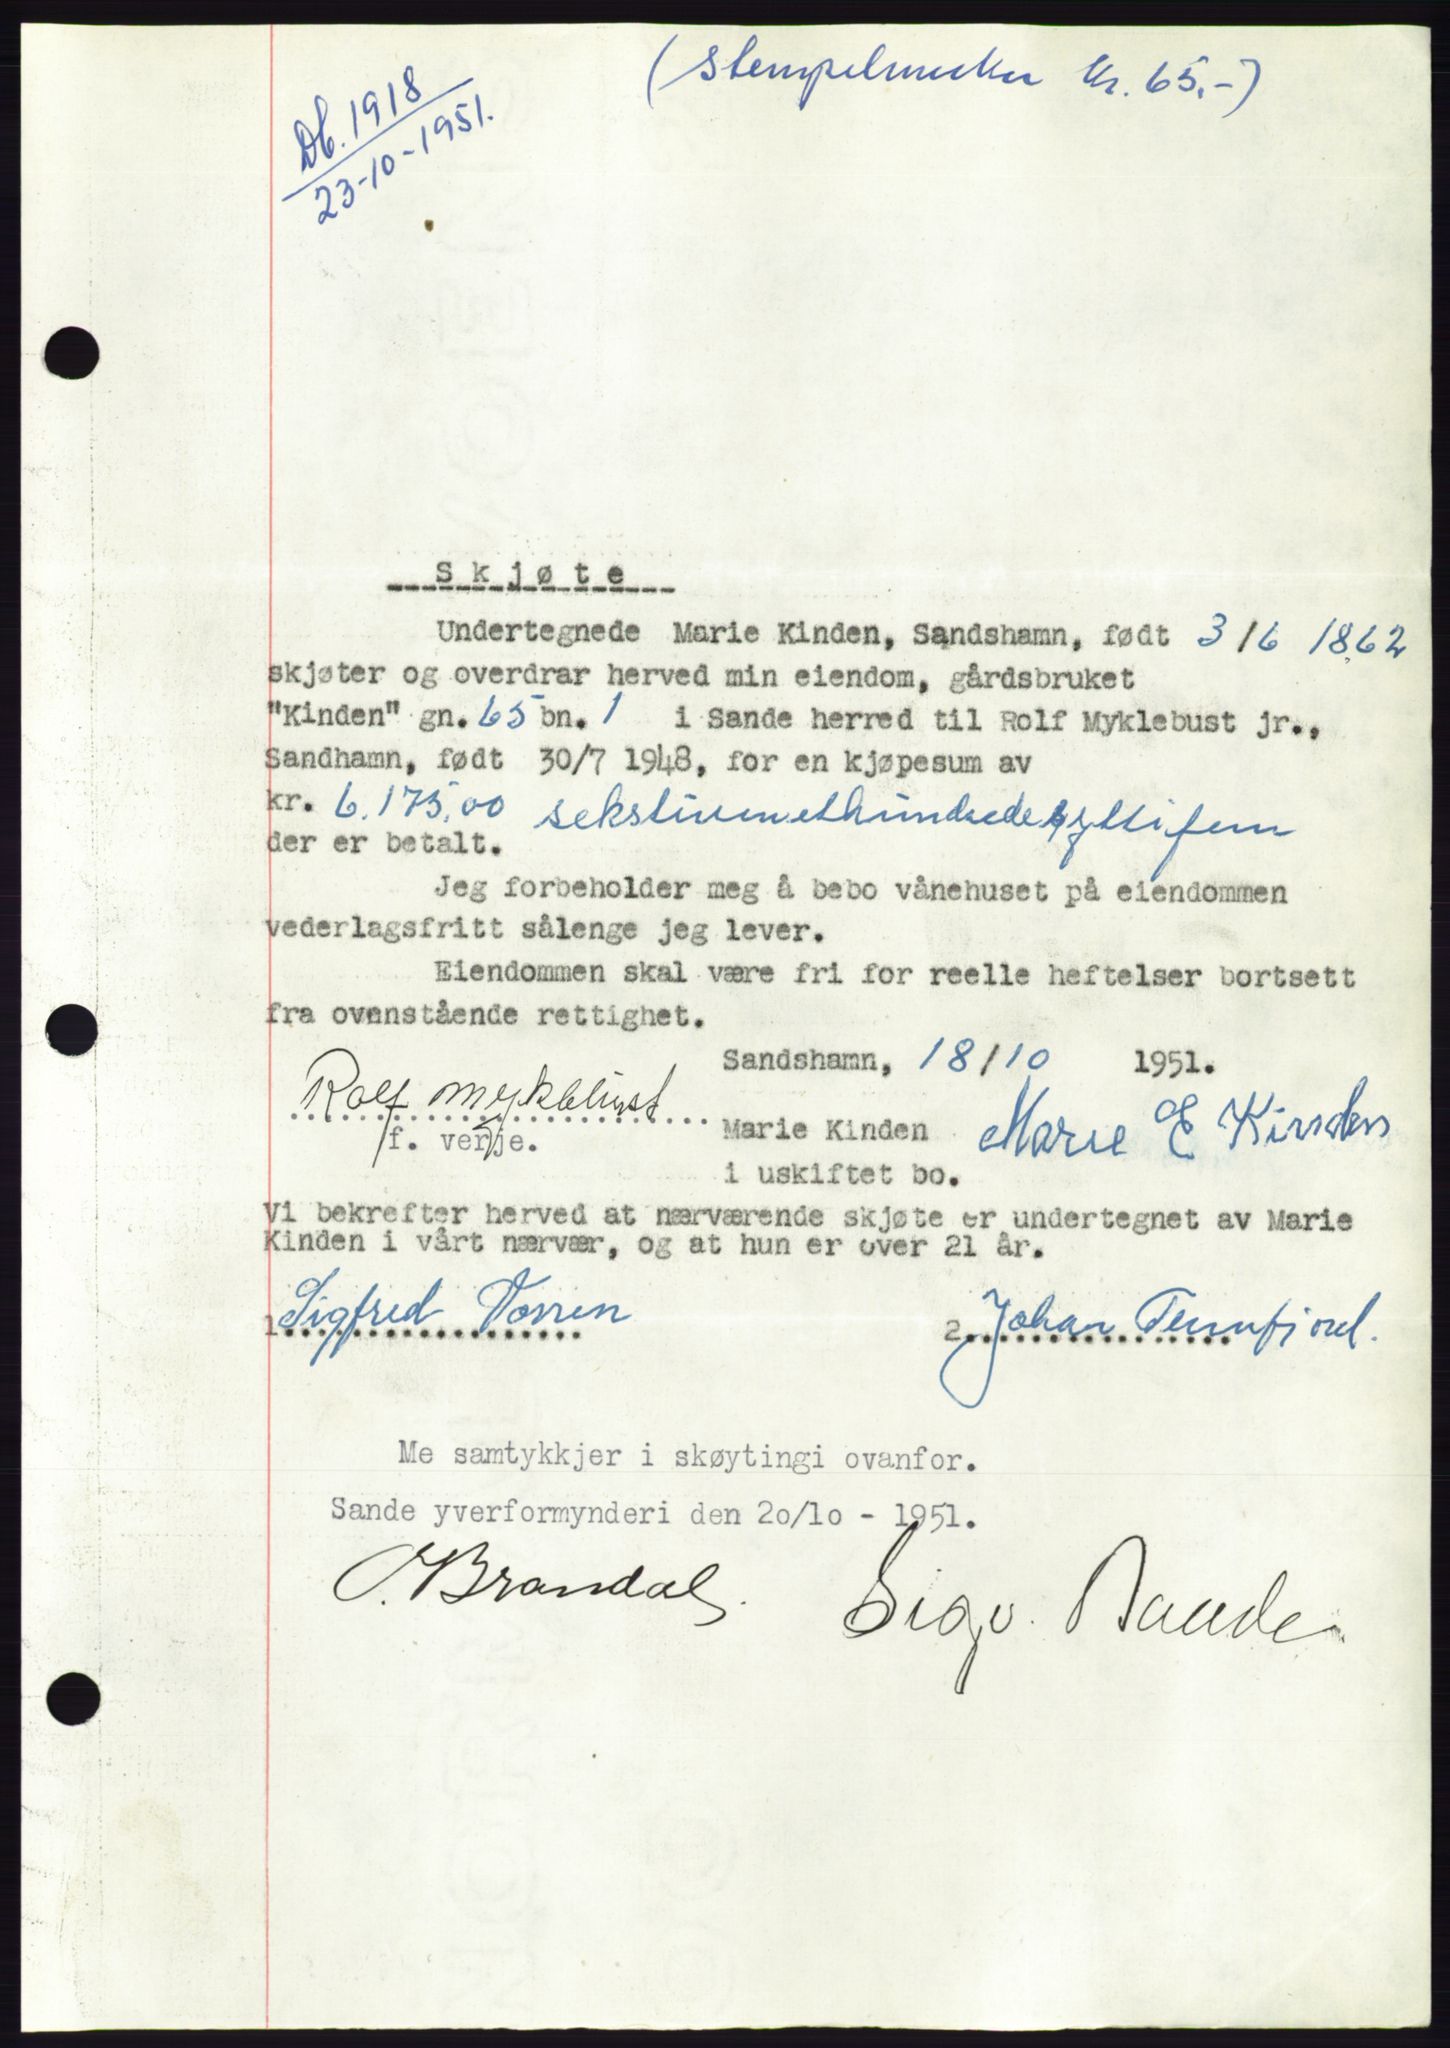 (Stempelmerker kr. 65,-)
Db. 1918
23-10-1951.
Skjøte
Undertegnede Marie Kinden, Sandshamn, født 3/6 1862
skjøter og overdrar herved min eiendom, gårdsbruket
"Kinden" gn. 65 bn. 1 i Sande herred til Rolf Myklebust jr.,
Sandhamn, født 30/7 1948, for en kjøpesum av
kr. 6.175,00 sekstusenethundredesyttifem
der er betalt.
Jeg forbeholder meg å bebo vånehuset på eiendommen
vederlagsfritt sålenge jeg lever.
Eiendommen skal være fri for reelle heftelser bortsett
fra ovenstående rettighet.
Sandshamn, 18/10 1951.
Rolf Myklebust
f. verje.
Marie Kinden Marie E Kinden
i uskiftet bo.
Vi bekrefter herved at nærværende skjøte er undertegnet av Marie
Kinden i vårt nærvær, og at hun er over 21 år.
1 Sigfred Vorren 2. Johan Tennfjord.
Me samtykkjer i skøytingi ovanfor.
Sande yverformynderi den 20/10 - 1951.
O. Brandal. Sigv.